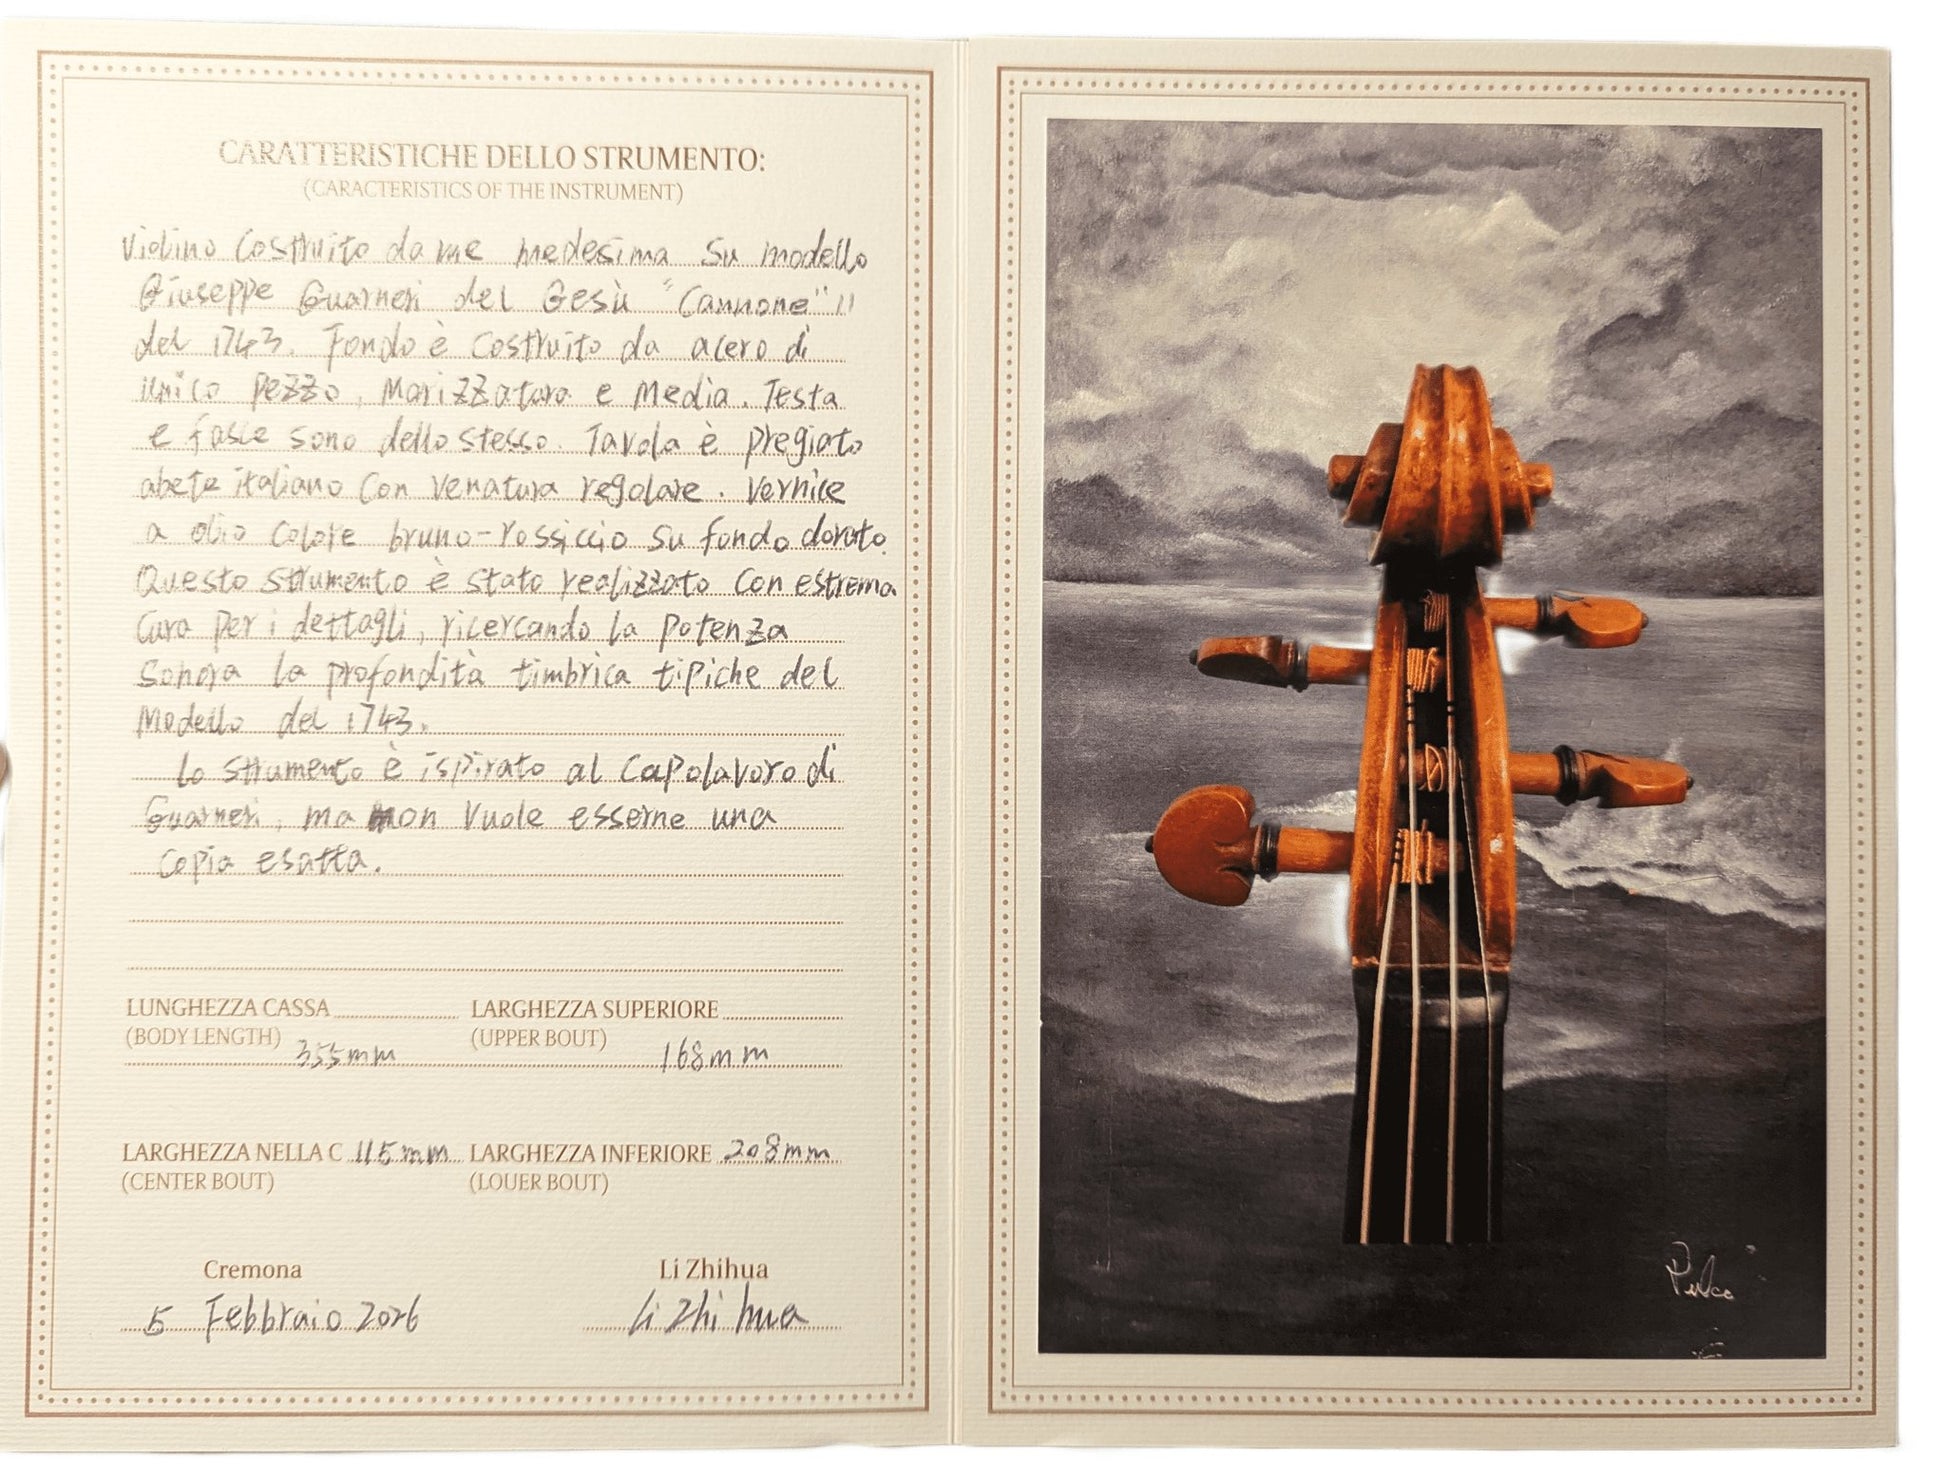 CARATTERISTICHE DELLO STRUMENTO:
(CARACTERISTICS OF THE INSTRUMENT)
Violino Costruito da me medesima Su modello
Giuseppe Guarneri del Gesù "Cannone"
del 1743. Fondo è Costruito da acero di
unico Pezzo, Marizzatura e Media. Testa
e fasce sono dello stesso. Tavola è pregiato
abete italiano Con Venatura regolare. Vernice
a olio Colore bruno-rossiccio Su fondo dorato.
Questo strumento è stato realizzato Con estrema
Cura Per i dettagli, ricercando la Potenza
Sonora la profondità timbrica tipiche del
Modello del 1743.
Lo strumento è ispirato al Capolavoro di
Guarneri, ma non Vuole esserne una
Copia esatta.
LUNGHEZZA CASSA LARGHEZZA SUPERIORE
(BODY LENGTH) (UPPER BOUT)
355mm 168mm
LARGHEZZA NELLA C 115mm LARGHEZZA INFERIORE 208mm
(CENTER BOUT) (LOUER BOUT)
Cremona Li Zhihua
5 Febbraio 2026 Li Zhi hua